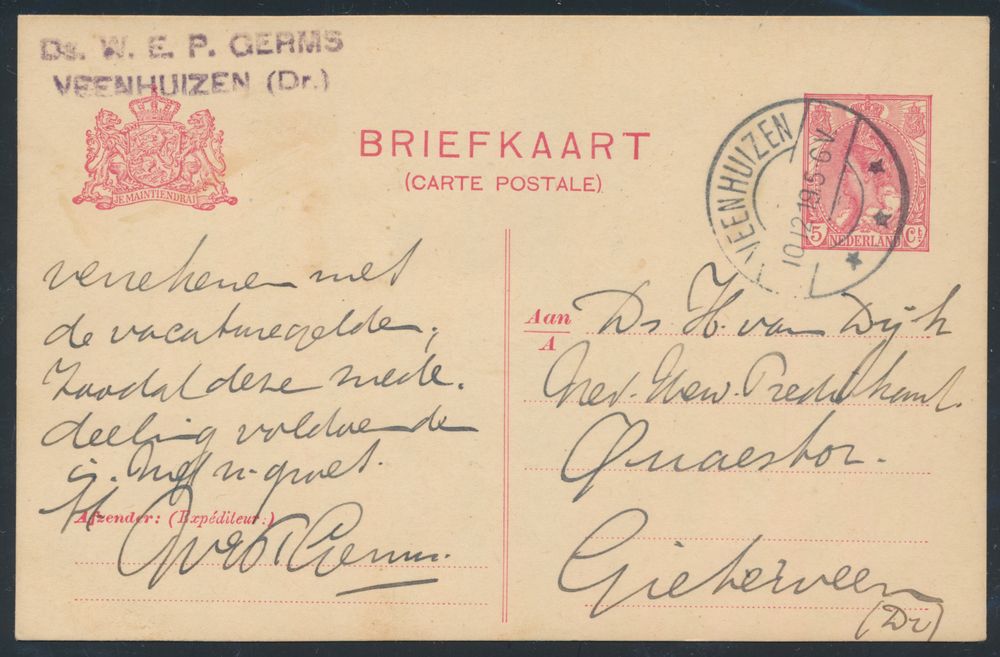 Ds. W. E. P. GERMS
VEENHUIZEN (Dr.)
JE MAINTIENDRAI
BRIEFKAART
(CARTE POSTALE)
VEENHUIZEN
10.12.19.5-6V.
5 Ct.
NEDERLAND
verrekenen met
de vacaturegelden,
zoodat deze mede-
deeling voldoende
is. Met vr. groet.
Afzender: (Expéditeur:)
WEPGerms.
Aan
A
Ds H. van Dijk
Ned. Herv. Predikant.
Quaestor.
Gieterveen
(Dr)